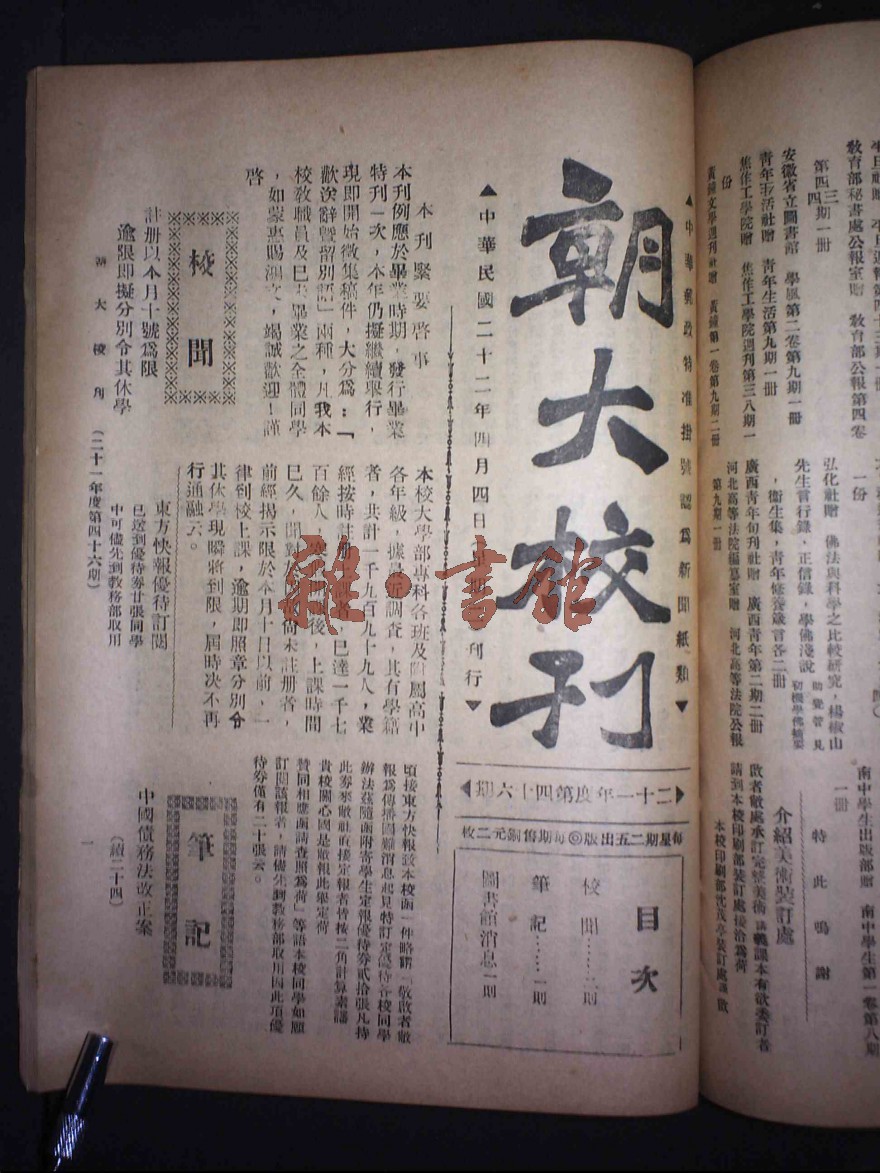 朝大校刊
▲中華郵政特准掛號認爲新聞紙類▼
▲中華民國二十二年四月四日
刊行▼
二十一年度第四十六期
每星期二五出版◎每期舊銅元二枚
目次
校聞……二則
筆記……一則
圖書館消息一則
本刊緊要啓事
本刊例應於畢業時期，發行畢業
特刊一次，本年仍擬繼續舉行，
現即開始徵集稿件，大分爲：「
歡送辭暨留別語」兩種，凡我本
校教職員及已未畢業之全體同學
，如蒙惠賜鴻文，竭誠歡迎！謹
啓
校聞
註册以本月十號爲限
逾限即擬分別令其休學
本校大學部專科各班及附屬高中
各年級，據最近調查，其有學籍
者，共計一千九百九十九人，業
經按時註册
者，已達一千七
百餘人，
後，上課時間
已久，聞對於
尚未註册者，
前經揭示限於本月十日以前，一
律到校上課，逾期即照章分別令
其休學現瞬將到限，屆時决不再
行通融云。
東方快報優待訂閱
已送到優待券廿張同學
中可儘先到教務部取用
頃接東方快報致本校函一件略謂「敬啟者敝
報爲傳播國難消息起見特訂定優待各校同學
辦法茲隨函附寄學生定報優待券貳拾張凡持
此券來敝社直接定報者皆按二角計算素諗
貴校關心國是敝報此舉定荷
贊同相應函請查照爲荷」等語本校同學如願
訂閱該報者，請儘先到教務部取用因此項優
待券僅有二十張云。
筆記
中國債務法改正案
（續二十四）
朝大校刊
（二十一年度第四十六期）
一
雜·書館
教育部秘書處公報室贈　教育部公報第四卷
第四三四期一册
安徽省立圖書館　學風第二卷第九期一册
青年生活社贈　青年生活第九期一册
焦作工學院贈　焦作工學院週刊第三八期一
份
黃鐘文學週刊社贈　黃鐘第一卷第九期二册
一份
弘化社贈　佛法與科學之比較研究，楊椒山
先生言行錄，正信錄，學佛淺說
初機學佛摘要
，衞生集，青年修養箴言各二册
廣西青年旬刊社贈　廣西青年第二期二册
河北高等法院編纂室贈　河北高等法院公報
第九期一册
南中學生出版部贈　南中學生第一卷第八期
一册
特此鳴謝
介紹美術裝訂處
請到本校印刷部裝訂處接洽爲荷